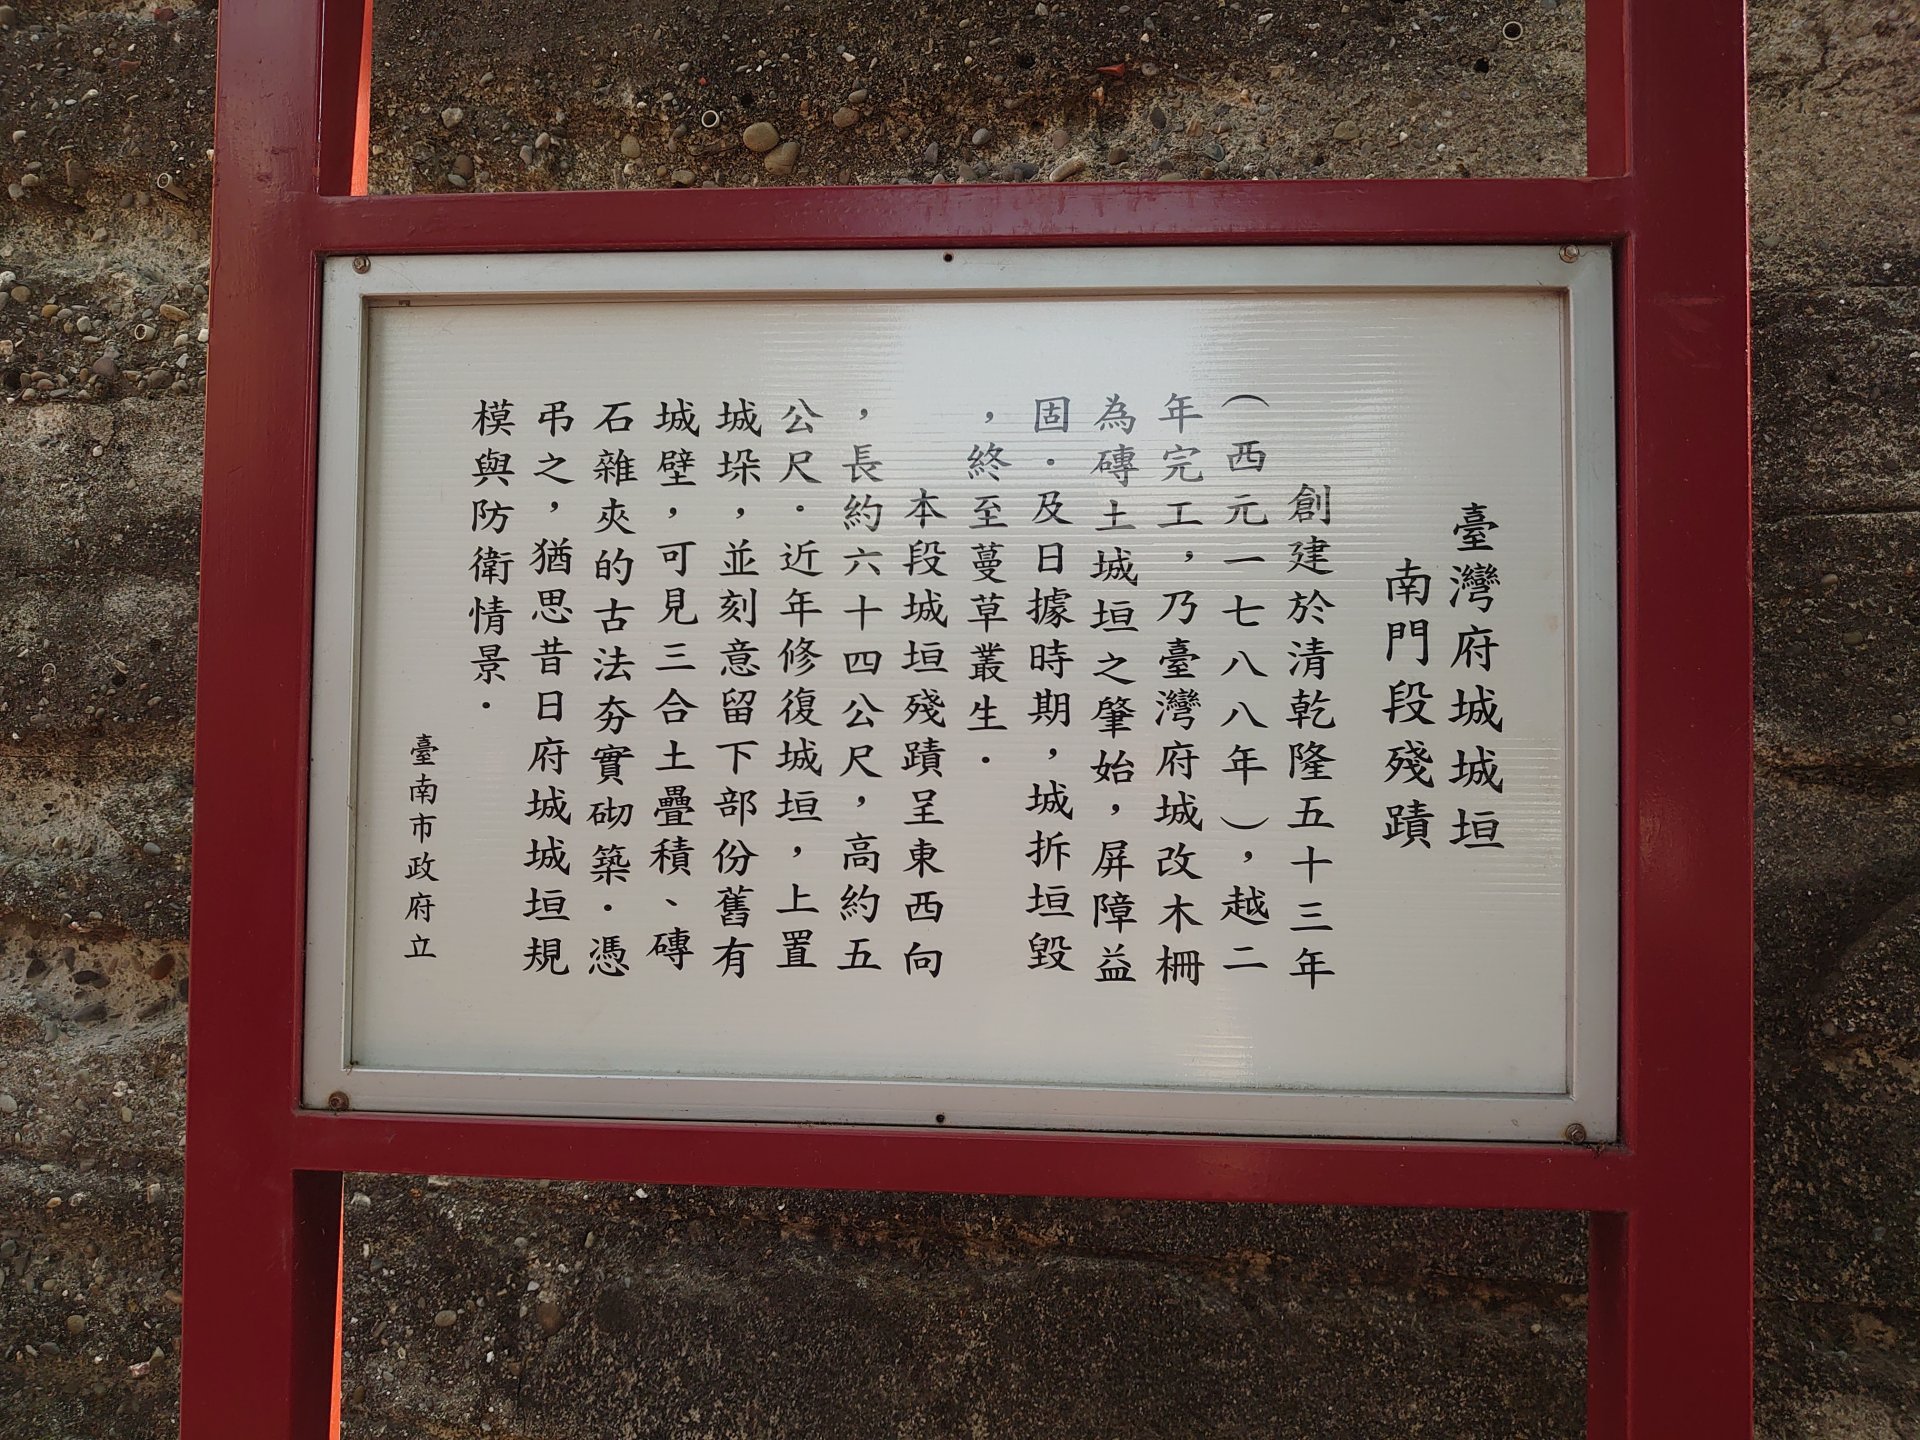 臺灣府城城垣
南門段殘蹟
創建於清乾隆五十三年
（西元一七八八年），越二
年完工，乃臺灣府城改木柵
為磚土城垣之肇始，屏障益
固．及日據時期，城拆垣毀
，終至蔓草叢生．
本段城垣殘蹟呈東西向
，長約六十四公尺，高約五
公尺．近年修復城垣，上置
城垛，並刻意留下部份舊有
城壁，可見三合土疊積、磚
石雜夾的古法夯實砌築．憑
弔之，猶思昔日府城城垣規
模與防衛情景．
臺南市政府立